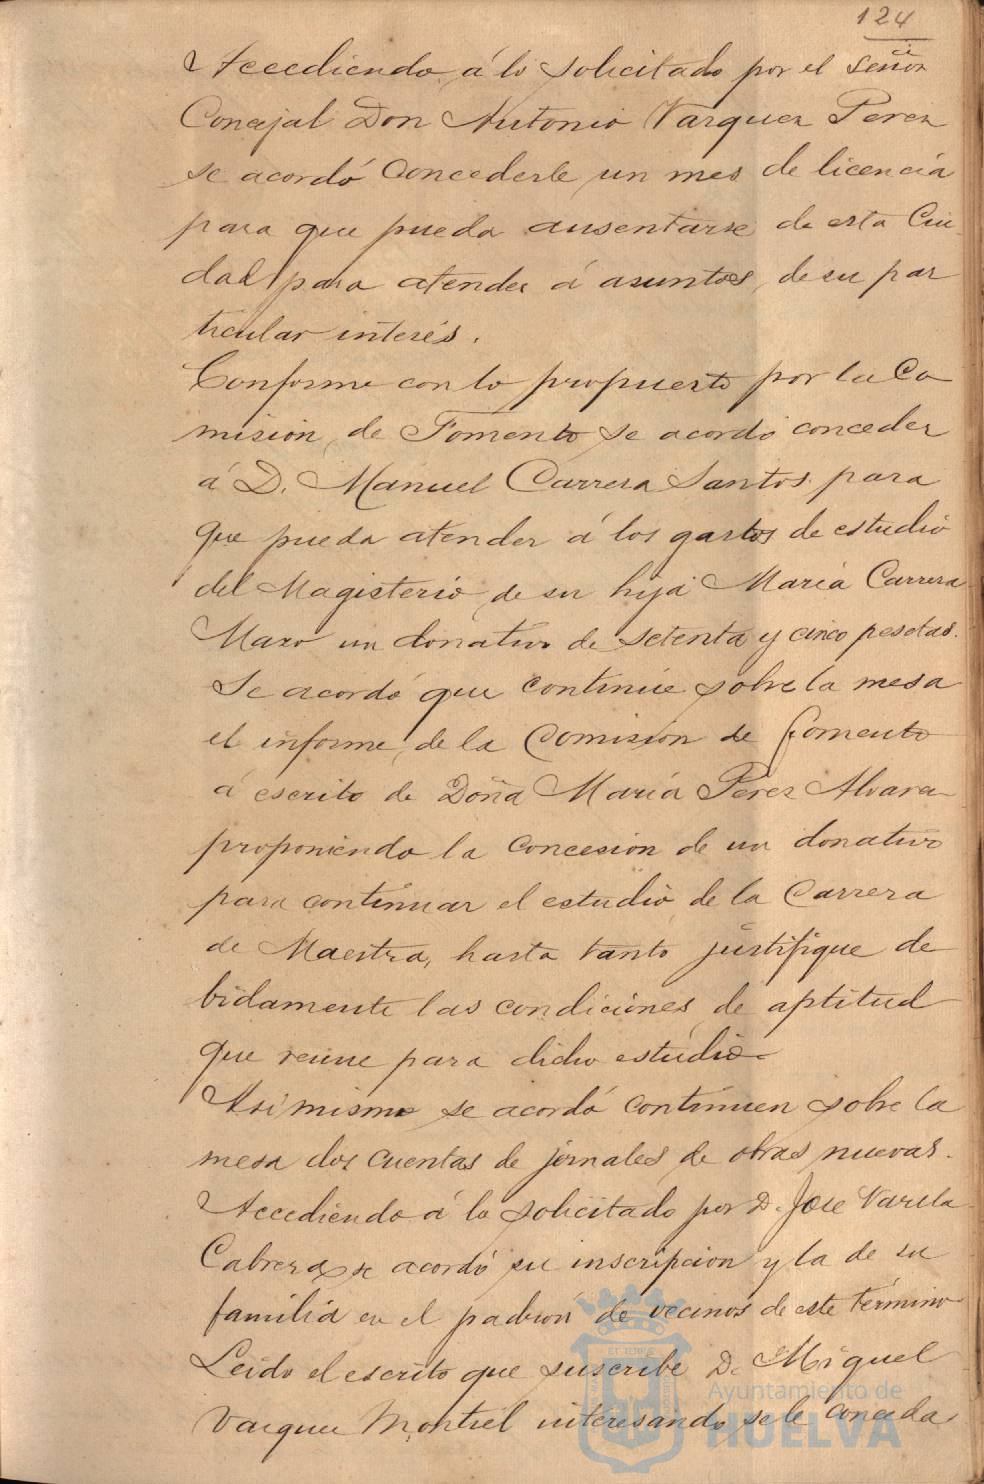 124
Accediendo á lo solicitado por el Señor
Concejal Don Antonio Vazquez Perez
se acordó concederle un mes de licencia
para que pueda ausentarse de esta Ciu-
dad para atender á asuntos de su par
ticular interés.
Conforme con lo propuesto por la Co
misión de Fomento se acordó conceder
á D. Manuel Carrera Santos para
que pueda atender á los gastos de estudio
del Magisterio de su hija María Carrera
Mazo un donativo de setenta y cinco pesetas.
Se acordó que continúe sobre la mesa
el informe de la Comisión de Fomento
á escrito de Doña María Perez Alvarez
proponiendo la concesion de un donativo
para continuar el estudio de la Carrera
de Maestra, hasta tanto justifique de
bidamente las condiciones de aptitud
que reune para dicho estudio.
Asi mismo se acordó continuen sobre la
mesa dos cuentas de jornales de obras nuevas.
Accediendo á lo solicitado por D. José Varela
Cabrera se acordó su inscripcion y la de su
familia en el padron de vecinos de este término
Leido el escrito que suscribe D. Miguel
Vazquez Montiel interesando se le conceda
Ayuntamiento de
HUELVA